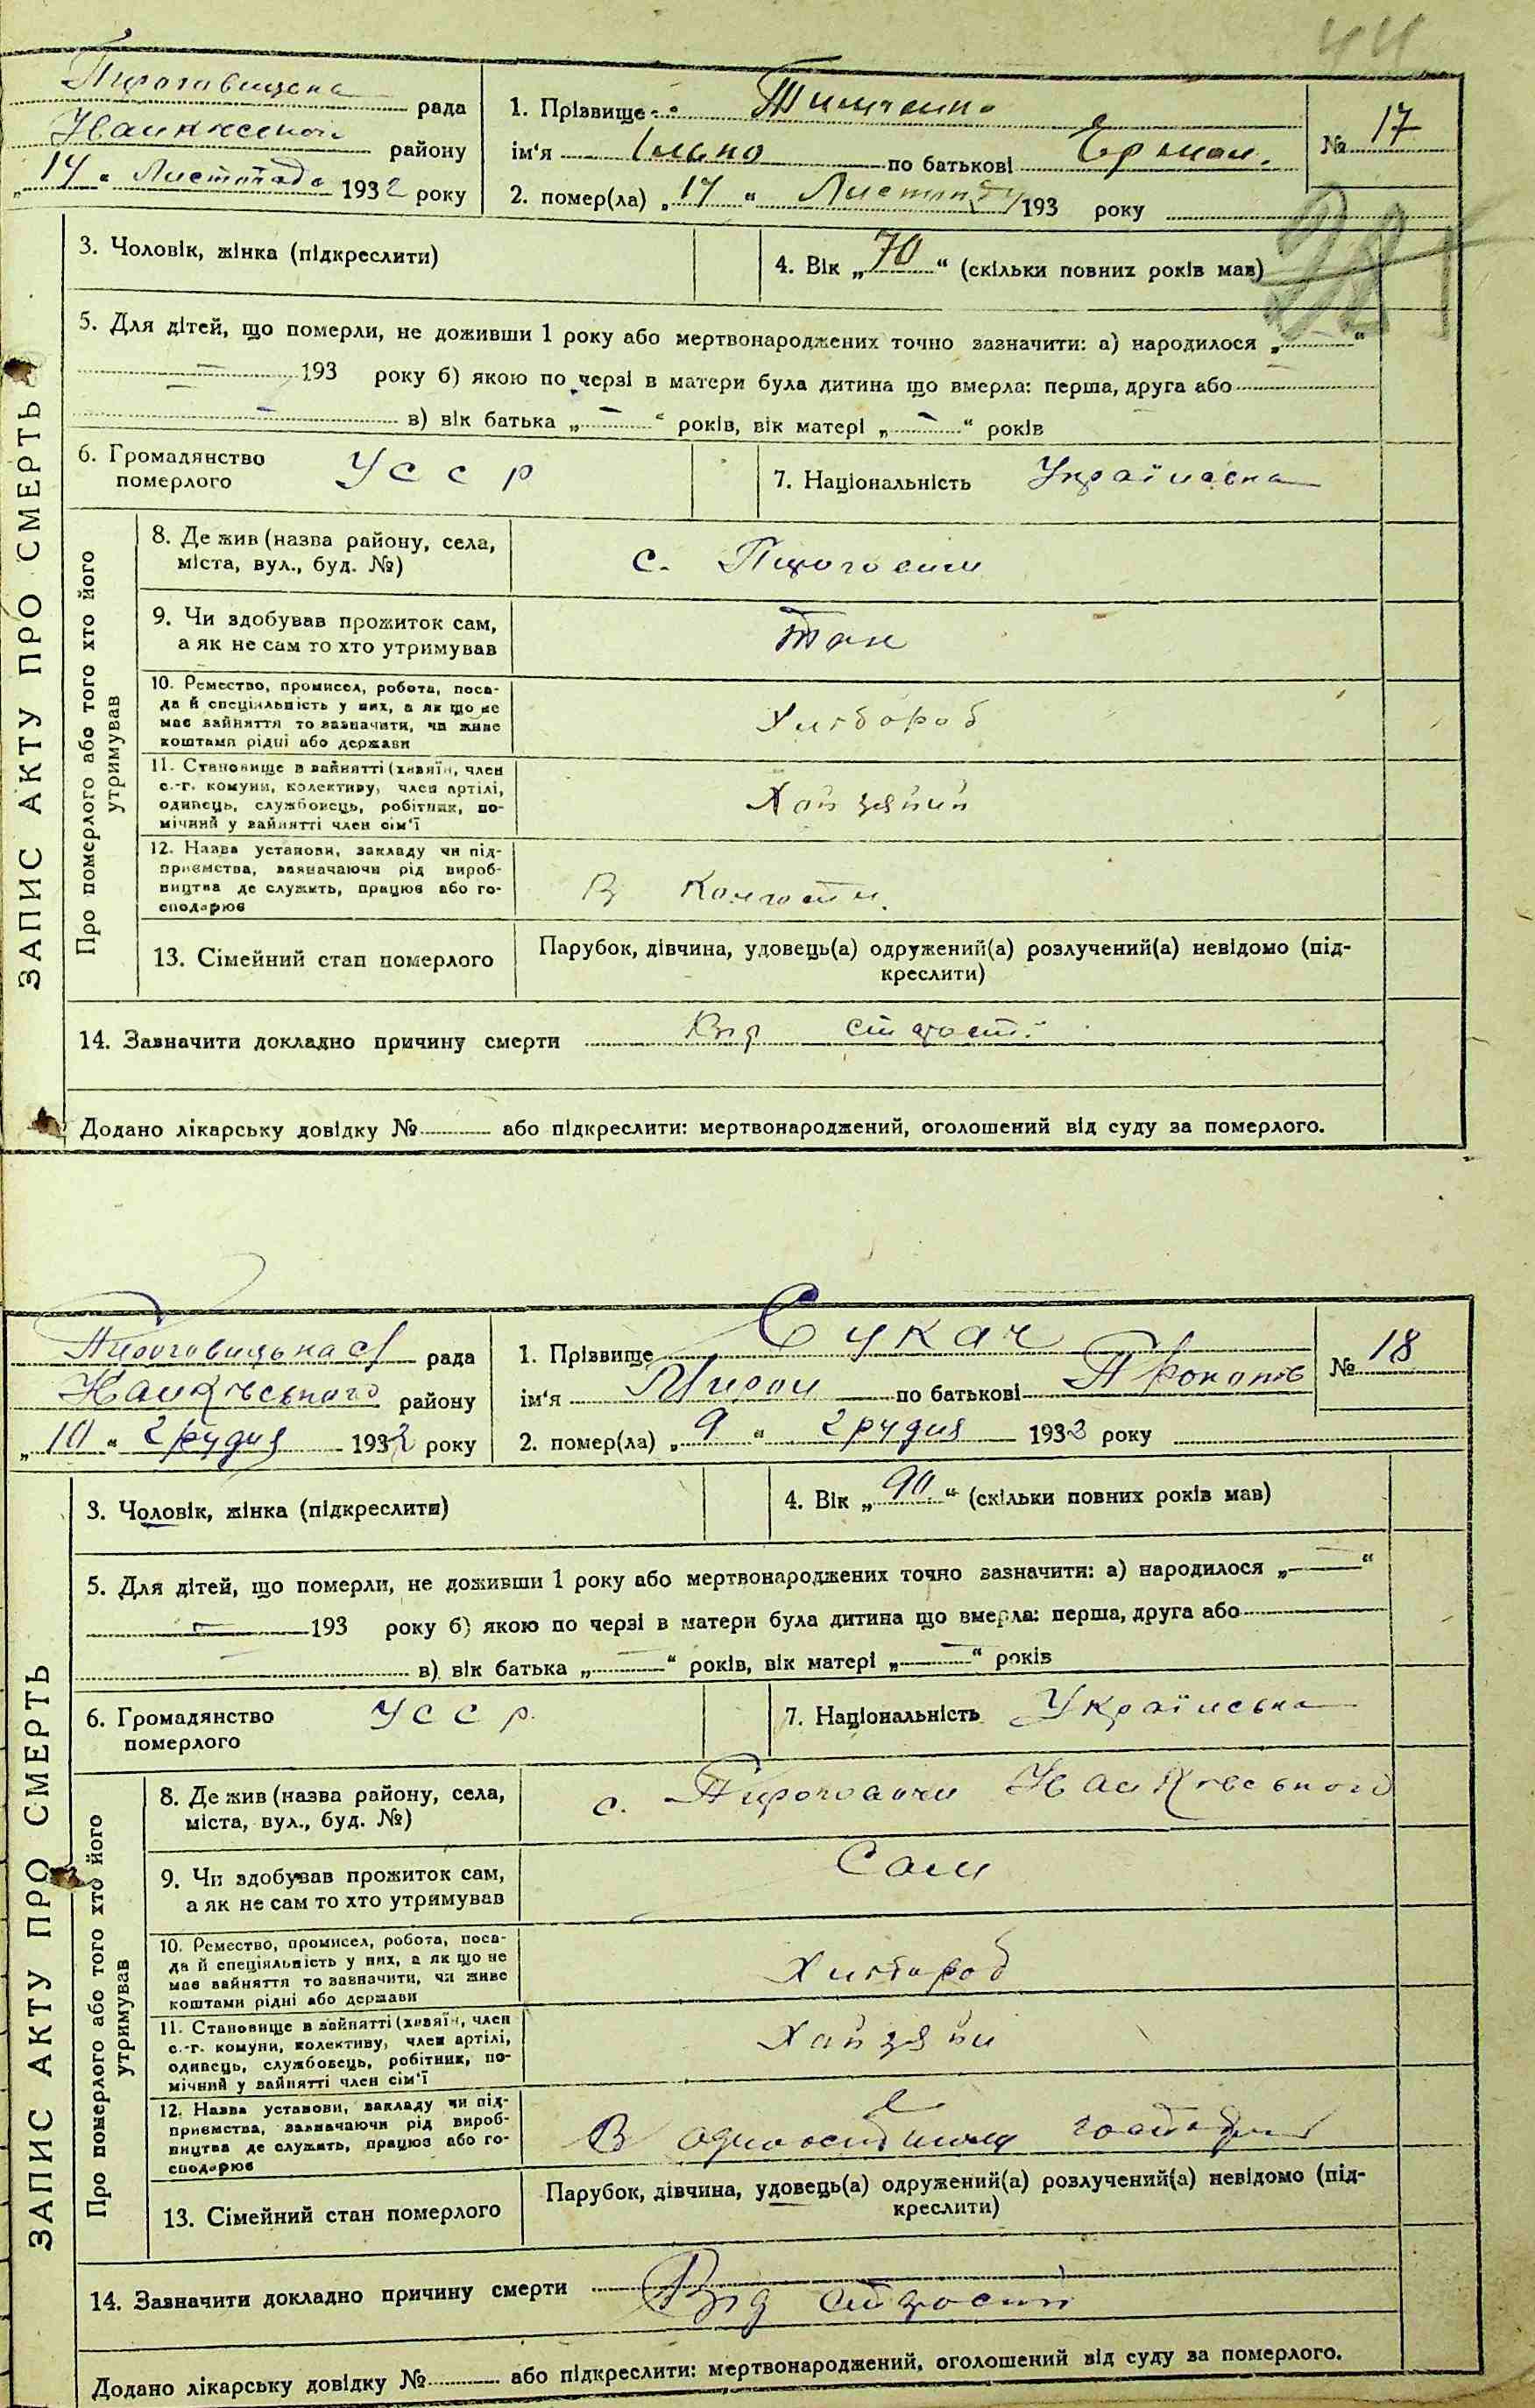 44
ЗАПИС АКТУ ПРО СМЕРТЬ
рада
району
„14“ Листопада 1932 року
1. Прізвище Тимченко
ім'я по батькові Ермол.
№ 17
2. помер(ла) „14“ Листопаду 193 року
3. Чоловік, жінка (підкреслити)
4. Вік „70“ (скільки повних років мав)
5. Для дітей, що померли, не доживши 1 року або мертвонароджених точно зазначити: а) народилося „—“
— 193 року б) якою по черзі в матери була дитина що вмерла: перша, друга або
— в) вік батька „—“ років, вік матері „—“ років
6. Громадянство померлого УССР
7. Національність Українська
Про померлого або того хто його утримував
8. Де жив (назва району, села,
міста, вул., буд. №)
с. Пироговичи
9. Чи здобував прожиток сам,
а як не сам то хто утримував
Так
10. Ремество, промисел, робота, поса-
да й спеціяльність у них, а як що не
має зайняття то зазначити, чи живе
коштами рідні або держави
Хлібороб
11. Становище в зайнятті (хазяїн, член
с.-г. комуни, колективу, член артілі,
одинець, службовець, робітник, по-
мічний у зайнятті член сім'ї
12. Назва установи, закладу чи під-
приємства, зазначаючи рід вироб-
ництва де служить, працює або го-
сподарює
В
13. Сімейний стан померлого
Парубок, дівчина, удовець(а) одружений(а) розлучений(а) невідомо (під-
креслити)
14. Зазначити докладно причину смерти Від старости
Додано лікарську довідку № або підкреслити: мертвонароджений, оголошений від суду за померлого.
ЗАПИС АКТУ ПРО СМЕРТЬ
рада
району
„10“ грудня 1932 року
1. Прізвище Сукач
ім'я Мирон по батькові Прокопів
№ 18
2. помер(ла) „9“ грудня 1932 року
3. Чоловік, жінка (підкреслити)
4. Вік „90“ (скільки повних років мав)
5. Для дітей, що померли, не доживши 1 року або мертвонароджених точно зазначити: а) народилося „—“
— 193 року б) якою по черзі в матери була дитина що вмерла: перша, друга або
— в) вік батька „—“ років, вік матері „—“ років
6. Громадянство померлого УССР
7. Національність Українська
Про померлого або того хто його утримував
8. Де жив (назва району, села,
міста, вул., буд. №)
с. Пироговичи
9. Чи здобував прожиток сам,
а як не сам то хто утримував
Сам
10. Ремество, промисел, робота, поса-
да й спеціяльність у них, а як що не
має зайняття то зазначити, чи живе
коштами рідні або держави
Хлібороб
11. Становище в зайнятті (хазяїн, член
с.-г. комуни, колективу, член артілі,
одинець, службовець, робітник, по-
мічний у зайнятті член сім'ї
12. Назва установи, закладу чи під-
приємства, зазначаючи рід вироб-
ництва де служить, працює або го-
сподарює
В
13. Сімейний стан померлого
Парубок, дівчина, удовець(а) одружений(а) розлучений(а) невідомо (під-
креслити)
14. Зазначити докладно причину смерти Від старости
Додано лікарську довідку № або підкреслити: мертвонароджений, оголошений від суду за померлого.